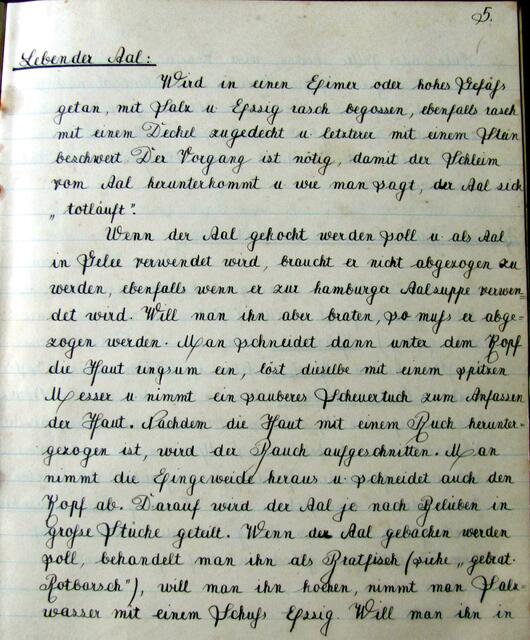 5.
Lebender Aal:
Wird in einen Eimer oder hohes Gefäß
getan, mit Salz u. Essig rasch begossen, ebenfalls rasch
mit einem Deckel zugedeckt u. letzterer mit einem Stein
beschwert. Der Vorgang ist nötig, damit der Schleim
vom Aal herunterkommt u wie man sagt, der Aal sich
„totläuft".
Wenn der Aal gekocht werden soll u. als Aal
in Gelee verwendet wird, braucht er nicht abgezogen zu
werden, ebenfalls wenn er zur hamburger Aalsuppe verwen
det wird. Will man ihn aber braten, so muß er abge=
zogen werden. Man schneidet dann unter dem Kopf
die Haut ringsum ein, löst dieselbe mit einem spitzen
Messer u nimmt ein sauberes Scheuertuch zum Anfassen
der Haut. Nachdem die Haut mit einem Ruck herunter-
gezogen ist, wird der Bauch aufgeschnitten. Man
nimmt die Eingeweide heraus u. schneidet auch den
Kopf ab. Darauf wird der Aal je nach Belieben in
große Stücke geteilt. Wenn der Aal gebacken werden
soll, behandelt man ihn als Bratfisch (siehe „gebrat.
Rotbarsch"), will man ihn kochen, nimmt man Salz
wasser mit einem Schuß Essig. Will man ihn in